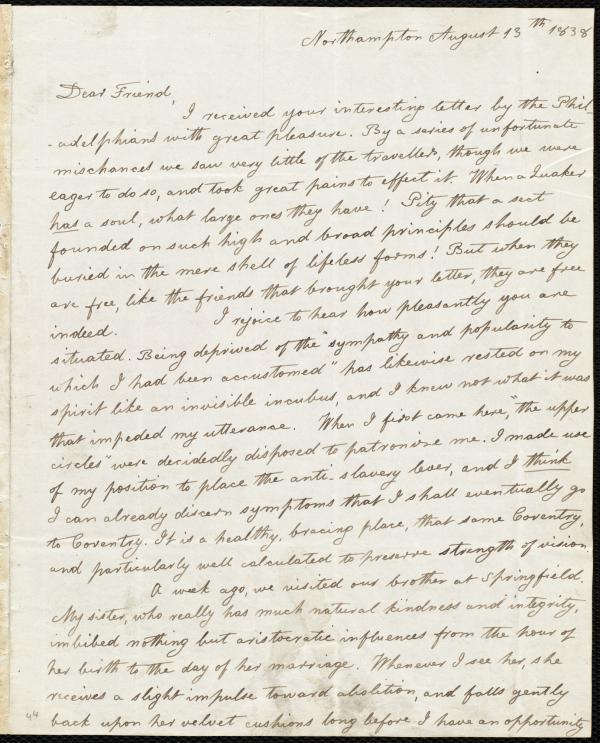 Northampton August 13th 1838
Dear Friend,
I received your interesting letter by the Phil-
-adelphians with great pleasure. By a series of unfortunate
mischances we saw very little of the travellers, though we were
eager to do so, and took great pains to effect it. When a Quaker
has a soul, what large ones they have! Pity that a sect
founded on such high and broad principles should be
buried in the mere shell of lifeless forms! But when they
are free, like the friends that brought your letter, they are free
indeed. I rejoice to hear how pleasantly you are
situated. Being deprived of the "sympathy and popularity to
which I had been accustomed" has likewise rested on my
spirit like an invisible incubus, and I knew not what it was
that impeded my utterance. When I first came here, "the upper
circles" were decidedly disposed to patronize me. I made use
of my position to place the anti-slavery lever, and I think
I can already discern symptoms that I shall eventually go
to Coventry. It is a healthy, bracing place, that same Coventry,
and particularly well calculated to preserve strength of vision.
A week ago, we visited our brother at Springfield.
My sister, who really has much natural kindness and integrity,
imbibed nothing but aristocratic influences from the hour of
her birth to the day of her marriage. Whenever I see her, she
receives a slight impulse toward abolition, and falls gently
back upon her velvet cushions long before I have an opportunity
44